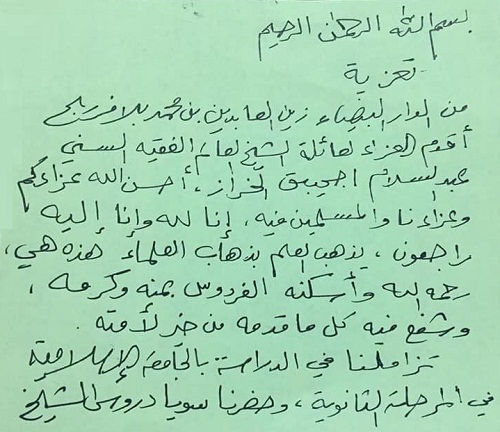 بسم الله الرحمان الرحيم
تعزية
من الدار البيضاء زين العابدين بن محمد بلافريج
أقدم العزاء لعائلة الشيخ العالم الفقيه السني
عبد السلام اجحيق الخراز، أحسن الله عزاءكم
وعزاءنا والمسلمين فيه، إنا لله وإنا إليه
راجعون، يذهب العلم بذهاب العلماء هذه هي،
رحمه الله وأسكنه الفردوس بمنه وكرمه،
وشفع فيه كل ما قدمه من خير لأمته.
تزاملنا في الدراسة بالجامعة الإسلامية
في المرحلة الثانوية، وحضرنا سويا دروس الشيخ